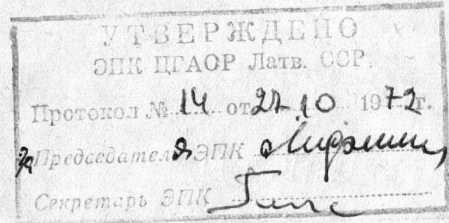 УТВЕРЖДЕНО
ЭПК ЦГАОР Латв. ССР.
Протокол № 14 от 27-10 1972 г.
За Председателя ЭПК
Секретарь ЭПК